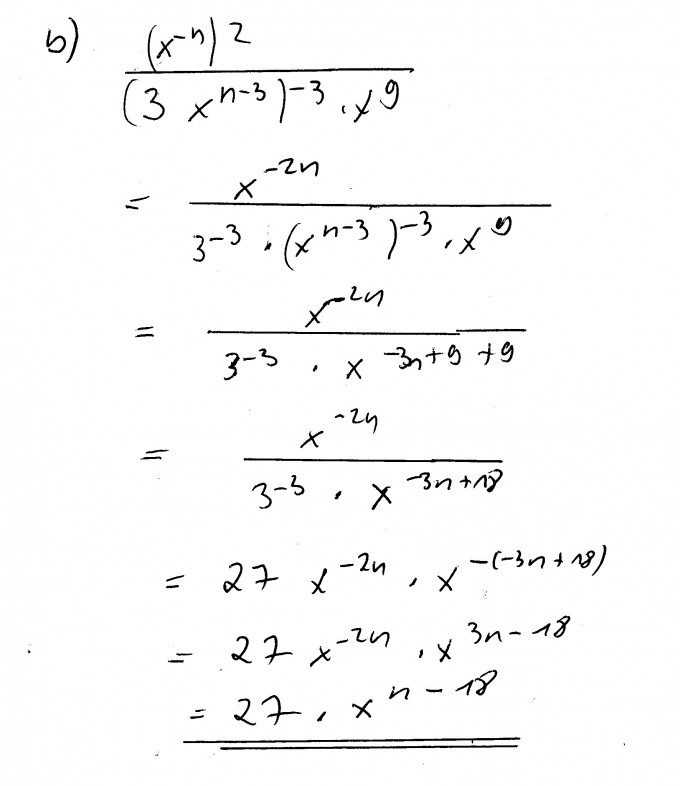 b) (x^{-n})^2 / ((3 x^{n-3})^{-3} · x^9)
= x^{-2n} / (3^{-3} · (x^{n-3})^{-3} · x^9)
= x^{-2n} / (3^{-3} · x^{-3n+9+9})
= x^{-2n} / (3^{-3} · x^{-3n+18})
= 27 x^{-2n} · x^{-(-3n+18)}
= 27 x^{-2n} · x^{3n-18}
= 27 · x^{n-18}